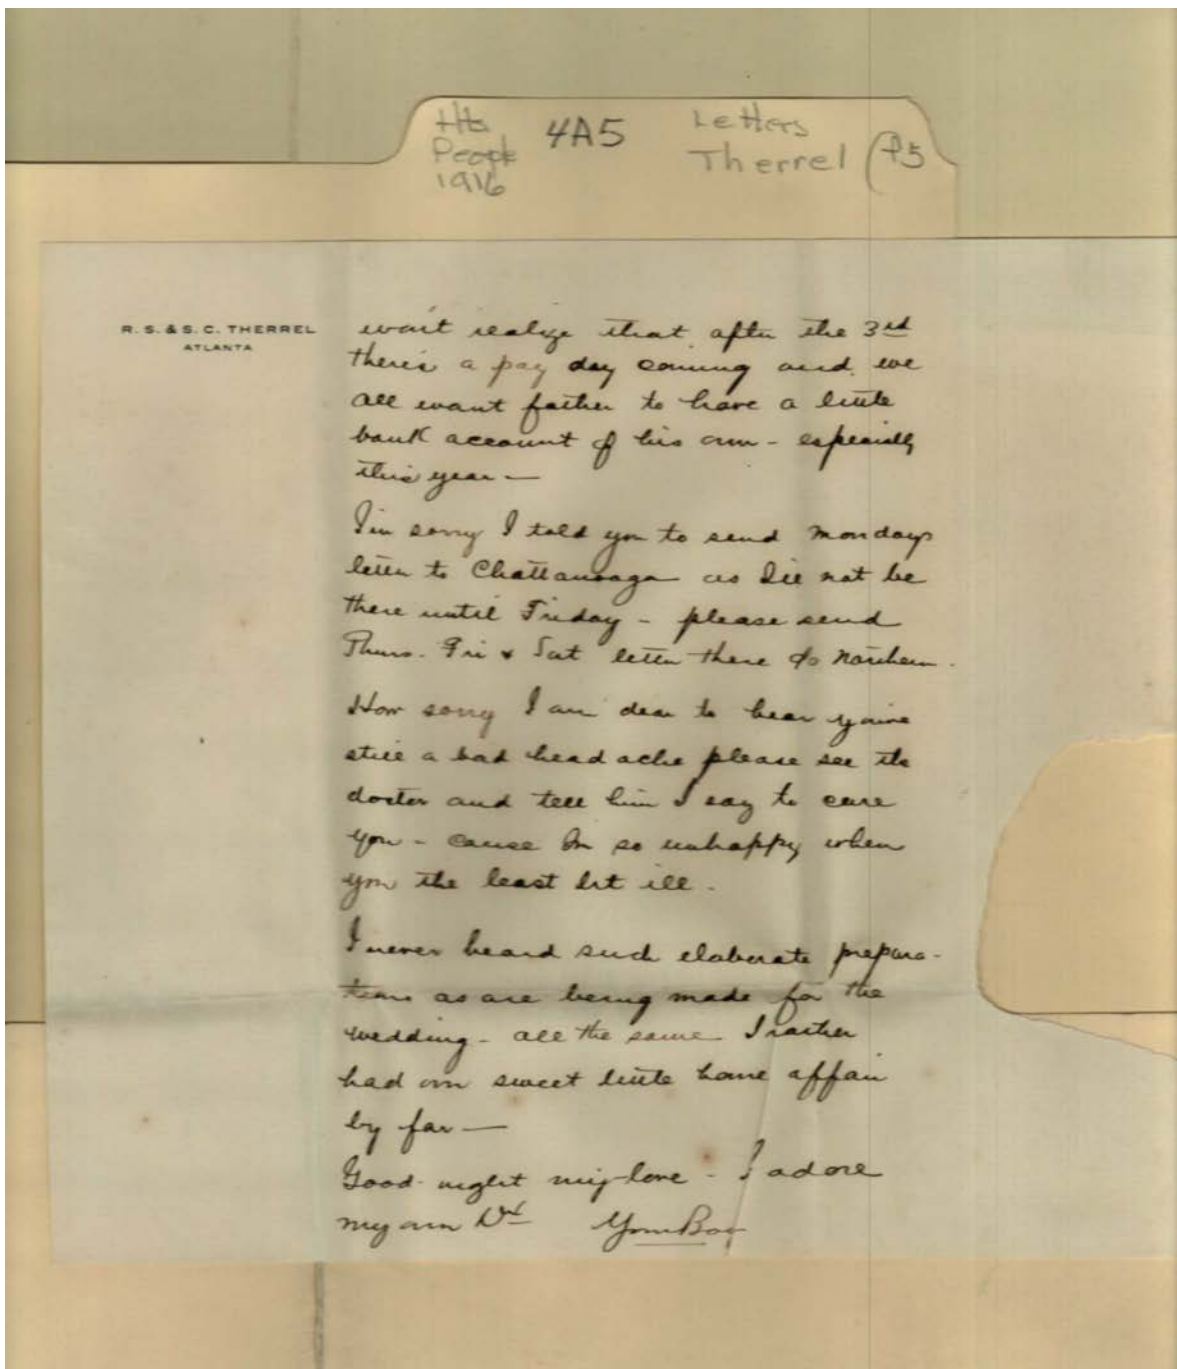 Hts
People
1916
4A5
Letters
Therrel (P5
R. S. & S. C. THERREL
ATLANTA
won't realize that after the 3rd
there's a pay day coming and we
all want father to have a little
bank account of his own - especially
this year —
I'm sorry I told you to send Mondays
letter to Chattanooga as I'll not be
there until Friday - please send
Thurs. Fri & Sat letter there c/o Northern.
How sorry I am dear to hear you've
still a bad head ache please see the
doctor and tell him I say to cure
you - cause Im so unhappy when
you the least bit ill.
I never heard such elaborate prepara-
tions as are being made for the
wedding - all the same I rather
had our sweet little home affair
by far —
Good night my love - I adore
my own
Your Boy